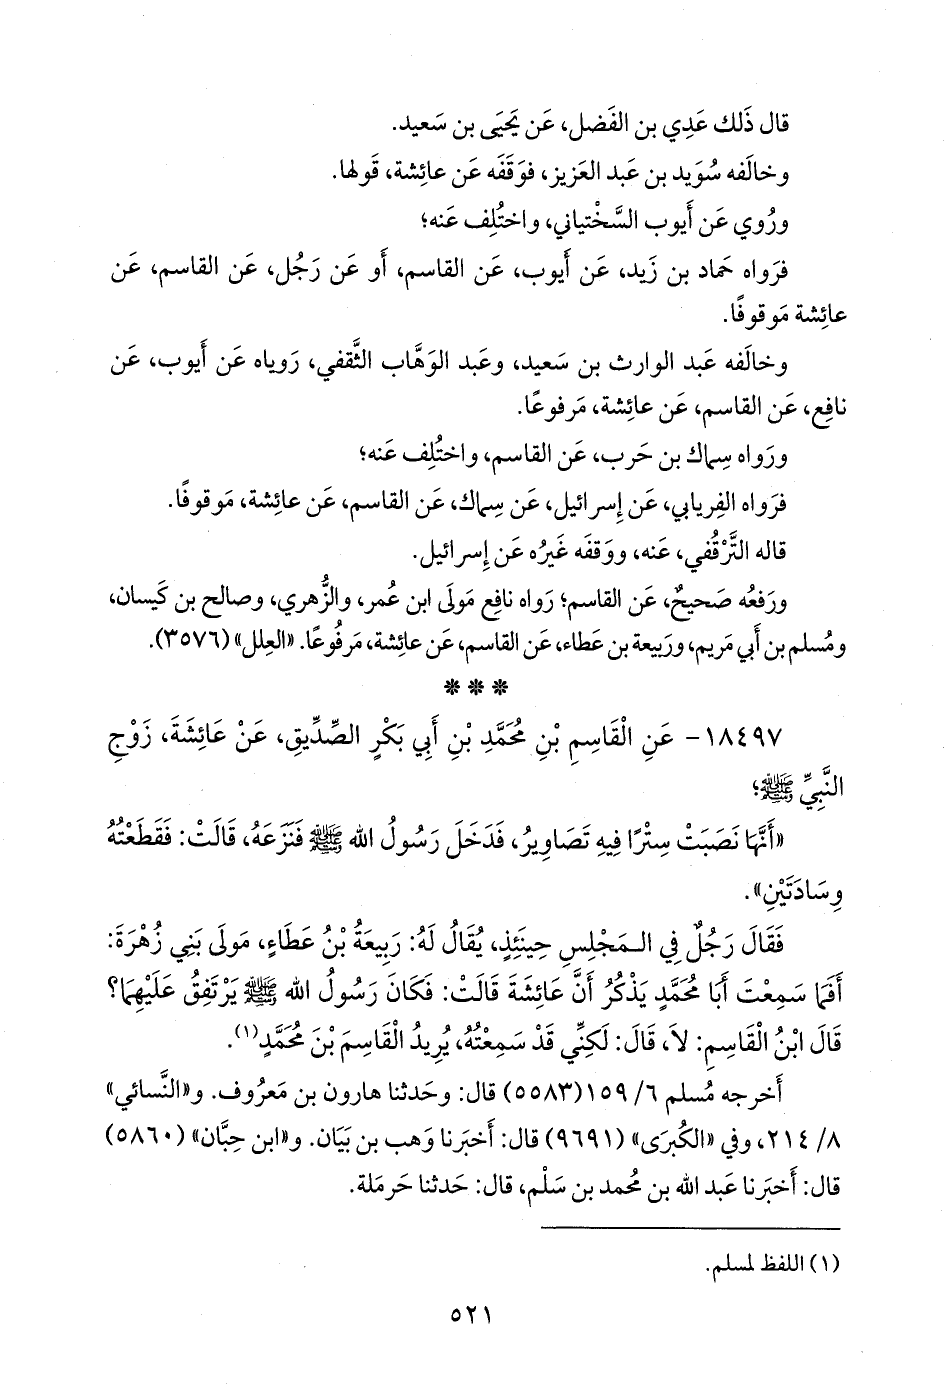 قال ذَلك عَدِي بن الفَضل، عَن يَحيَى بن سَعيد.
وخالَفه سُوَيد بن عَبد العَزيز، فوَقَفَه عَن عائِشة، قَولها.
ورُوي عَن أَيوب السَّخْتياني، واختُلِف عَنه؛
فرَواه حَماد بن زَيد، عَن أَيوب، عَن القاسم، أَو عَن رَجُل، عَن القاسم، عَن
عائِشة مَوقوفًا.
وخالَفه عَبد الوارث بن سَعيد، وعَبد الوَهَّاب الثَّقفي، رَوياه عَن أَيوب، عَن
نافِع، عَن القاسم، عَن عائِشة، مَرفوعًا.
ورَواه سِماك بن حَرب، عَن القاسم، واختُلِف عَنه؛
فرَواه الفِريابي، عَن إِسرائيل، عَن سِماك، عَن القاسم، عَن عائِشة، مَوقوفًا.
قاله التَّرْقُفي، عَنه، ووَقفَه غَيرُه عَن إِسرائيل.
ورَفعُه صَحيحٌ، عَن القاسم؛ رَواه نافِع مَولَى ابن عُمر، والزُّهري، وصالح بن كَيسان،
ومُسلم بن أَبي مَريم، ورَبيعة بن عَطاء، عَن القاسم، عَن عائِشة، مَرفُوعًا. «العِلل» (٣٥٧٦).
* * *
١٨٤٩٧- عَنِ الْقَاسِمِ بْنِ مُحَمَّدِ بْنِ أَبِي بَكْرٍ الصِّدِّيقِ، عَنْ عَائِشَةَ، زَوْجِ
النَّبِيِّ ﷺ؛
«أَنَّهَا نَصَبَتْ سِتْرًا فِيهِ تَصَاوِيرُ، فَدَخَلَ رَسُولُ الله ﷺ فَنَزَعَهُ، قَالَتْ: فَقَطَعْتُهُ
وِسَادَتَيْنِ».
فَقَالَ رَجُلٌ فِي الـمَجْلِسِ حِينَئِذٍ، يُقَالُ لَهُ: رَبِيعَةُ بْنُ عَطَاءٍ، مَولَى بَنِي زُهْرَةَ:
أَفَمَا سَمِعْتَ أَبَا مُحَمَّدٍ يَذْكُرُ أَنَّ عَائِشَةَ قَالَتْ: فَكَانَ رَسُولُ الله ﷺ يَرْتَفِقُ عَلَيْهِمَا؟
قَالَ ابْنُ الْقَاسِمِ: لاَ، قَالَ: لَكِنِّي قَدْ سَمِعْتُهُ، يُرِيدُ الْقَاسِمَ بْنَ مُحَمَّدٍ(١).
أَخرجه مُسلم ٦/ ١٥٩(٥٥٨٣) قال: وحَدثنا هارون بن مَعرُوف. و«النَّسائي»
٨/ ٢١٤، وفي «الكُبرَى» (٩٦٩١) قال: أَخبَرنا وَهب بن بَيَان. و«ابن حِبَّان» (٥٨٦٠)
قال: أَخبَرنا عَبد الله بن مُحمد بن سَلْم، قال: حَدثنا حَرمَلة.
(١) اللفظ لمسلم.
٥٢١